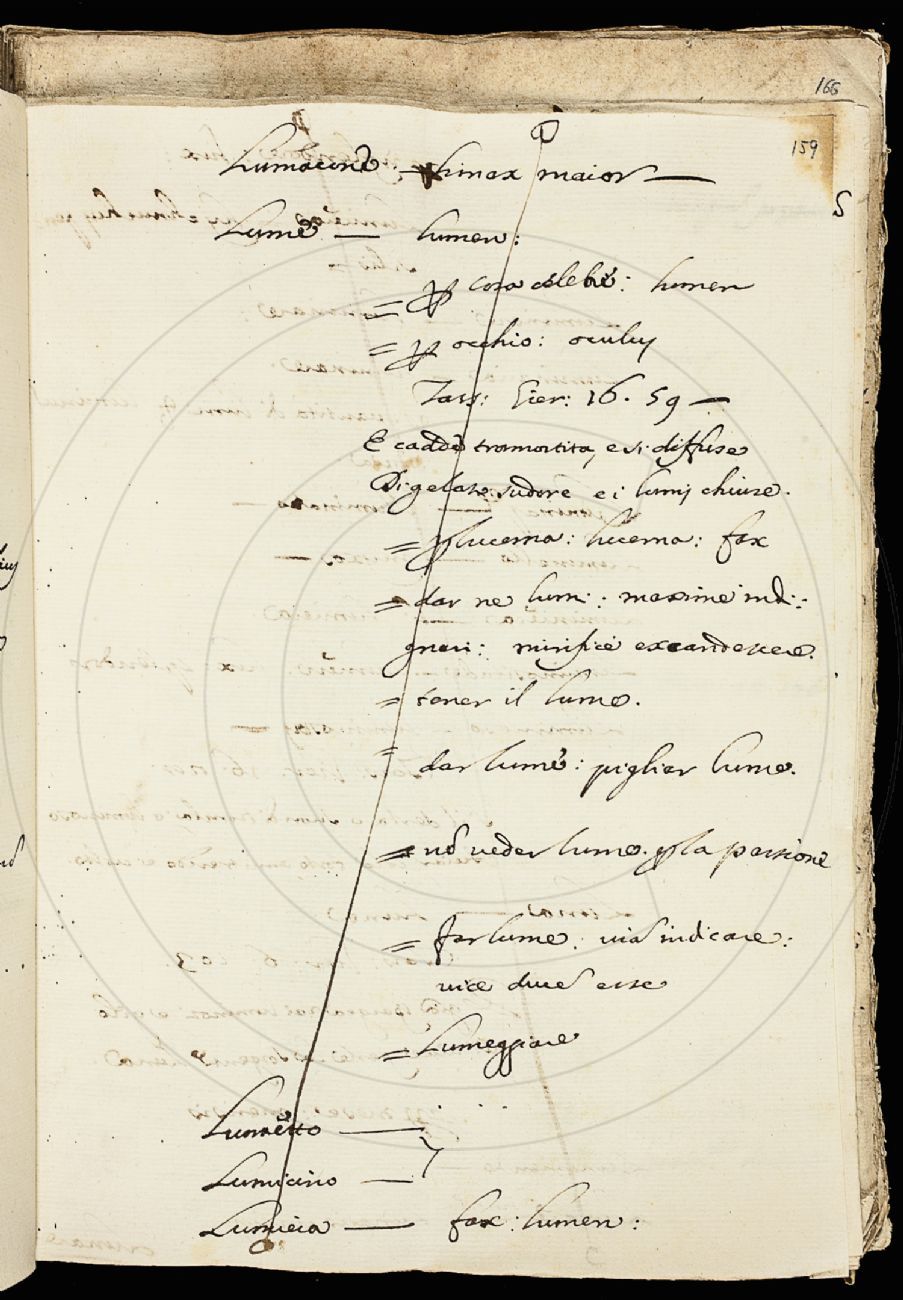 166
159
S
Lumacone — limax maior —
Lumè — lumen:
= p cosa celebrè: lumen
= p occhio: oculus
Tass: Gier: 16. 59 —
E caddè tramortita, e si diffuse
Di gelato sudore e i lumi chiuse.
= p lucerna: lucerna: fax
= dar ne lumi: maxime indi-
gnari: mirificè excandescere.
= tener il lume.
= dar lumè: pigliar lume.
= nō veder lume. p la passione
= far lume. viā indicare:
vice ducē esse
= Lumeggiare
Lumètto —
Lumicino —
Lumiera — fax: lumen: